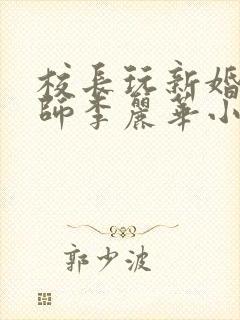 校長玩新婚
師李麗華小
郭少波